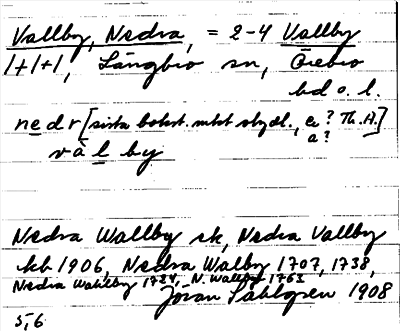 Vallby, Nedra, = 2-4 Vallby
1/1+1, Längbro sn, Örebro
hd o. l.
nedr [sista bokst. mkt otydl., e? Th.A.]
a?
vàl by
Nedra Wallby sk, Nedra Vallby
kb 1906, Nedra Walby 1707, 1738,
Nedra Wallby 1724, N. Wallby 1763
Jöran Sahlgren 1908
5,6